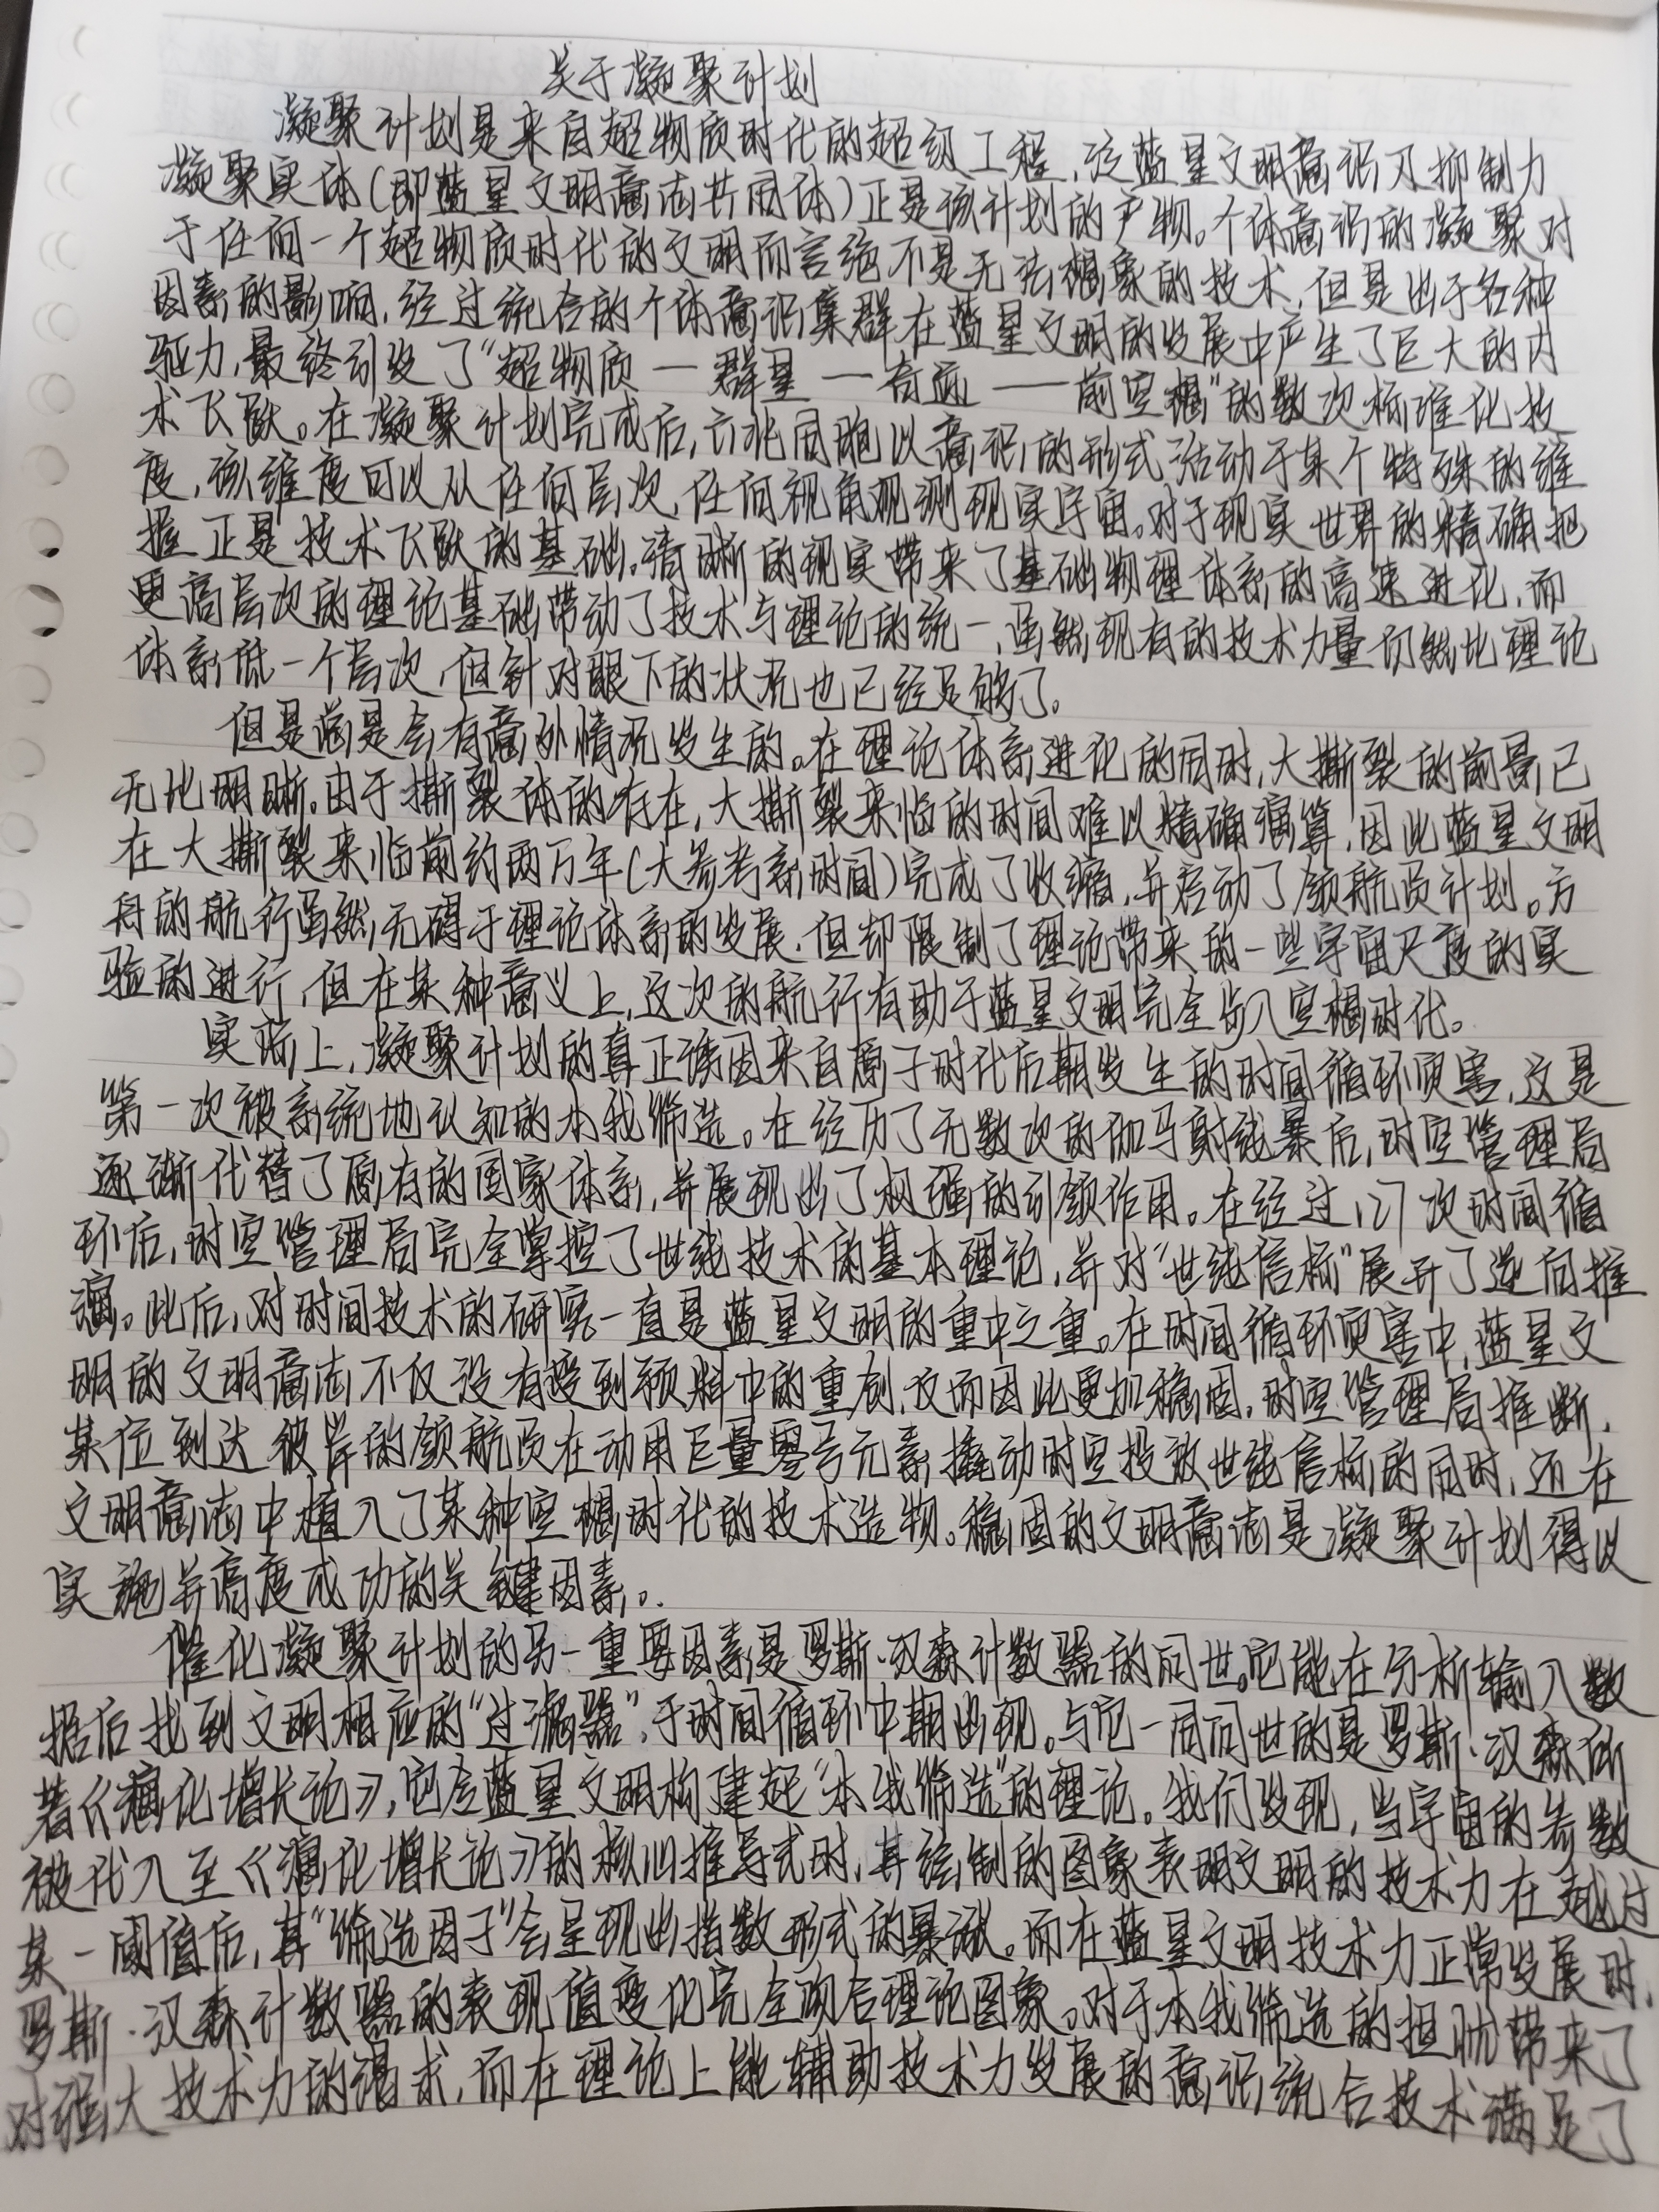 关于凝聚计划
凝聚计划是来自超物质时代的超级工程,泛蓝星文明意识及抑制力
凝聚实体(即蓝星文明意志共同体)正是该计划的产物。个体意识的凝聚对
于任何一个超物质时代的文明而言绝不是无法想象的技术,但是出于各种
因素的影响,经过统合的个体意识集群在蓝星文明的发展中产生了巨大的内
驱力,最终引发了“超物质—群星—奇迹——前空想”的数次标准化技
术飞跃。在凝聚计划完成后,六兆同胞以意识的形式活动于某个特殊的维
度,该维度可以从任何层次,任何视角观测现实宇宙。对于现实世界的精确把
握正是技术飞跃的基础。清晰的现实带来了基础物理体系的高速进化,而
更高层次的理论基础带动了技术与理论的统一,虽然现有的技术力量仍然比理论
体系低一个层次,但针对眼下的状况也已经足够了。
但是总是会有意外情况发生的。在理论体系进化的同时,大撕裂的前景已
无比明晰。由于撕裂体的存在,大撕裂来临的时间难以精确演算,因此蓝星文明
在大撕裂来临前约两万年(大参考系时间)完成了收缩,并启动了领航员计划。方
舟的航行虽然无碍于理论体系的发展,但却限制了理论带来的一些宇宙尺度的实
验的进行,但在某种意义上,这次的航行有助于蓝星文明完全步入空想时代。
实际上,凝聚计划的真正诱因来自原子时代后期发生的时间循环灾害,这是
第一次被系统地认知的本我筛选。在经历了无数次的伽马射线暴后,时空管理局
逐渐代替了原有的国家体系,并展现出了极强的引领作用。在经过127次时间循
环后,时空管理局完全掌控了世线技术的基本理论,并对“世线信标”展开了逆向推
演。此后,对时间技术的研究一直是蓝星文明的重中之重。在时间循环灾害中,蓝星文
明的文明意志不仅没有受到预料中的重创,反而因此更加稳固,时空管理局推断,
某位到达彼岸的领航员在动用巨量零号元素撬动时空投放世线信标的同时,还在
文明意志中植入了某种空想时代的技术造物。稳固的文明意志是凝聚计划得以
实施并高度成功的关键因素。
催化凝聚计划的另一重要因素是罗斯·汉森计数器的问世。它能在分析输入数
据后找到文明相应的“过滤器”,于时间循环中期出现。与它一同问世的是罗斯·汉森所
著《演化增长论》,它令蓝星文明构建起“本我筛选”的理论。我们发现,当宇宙的参数
被代入至《演化增长论》的核心推导式时,其绘制的图象表明文明的技术力在越过
某一阈值后,其“筛选因子”会呈现出指数形式的暴涨。而在蓝星文明技术力正常发展时,
罗斯·汉森计数器的表现值变化完全吻合理论图象。对于本我筛选的担忧带来了
对强大技术力的渴求,而在理论上能辅助技术力发展的意识统合技术满足了